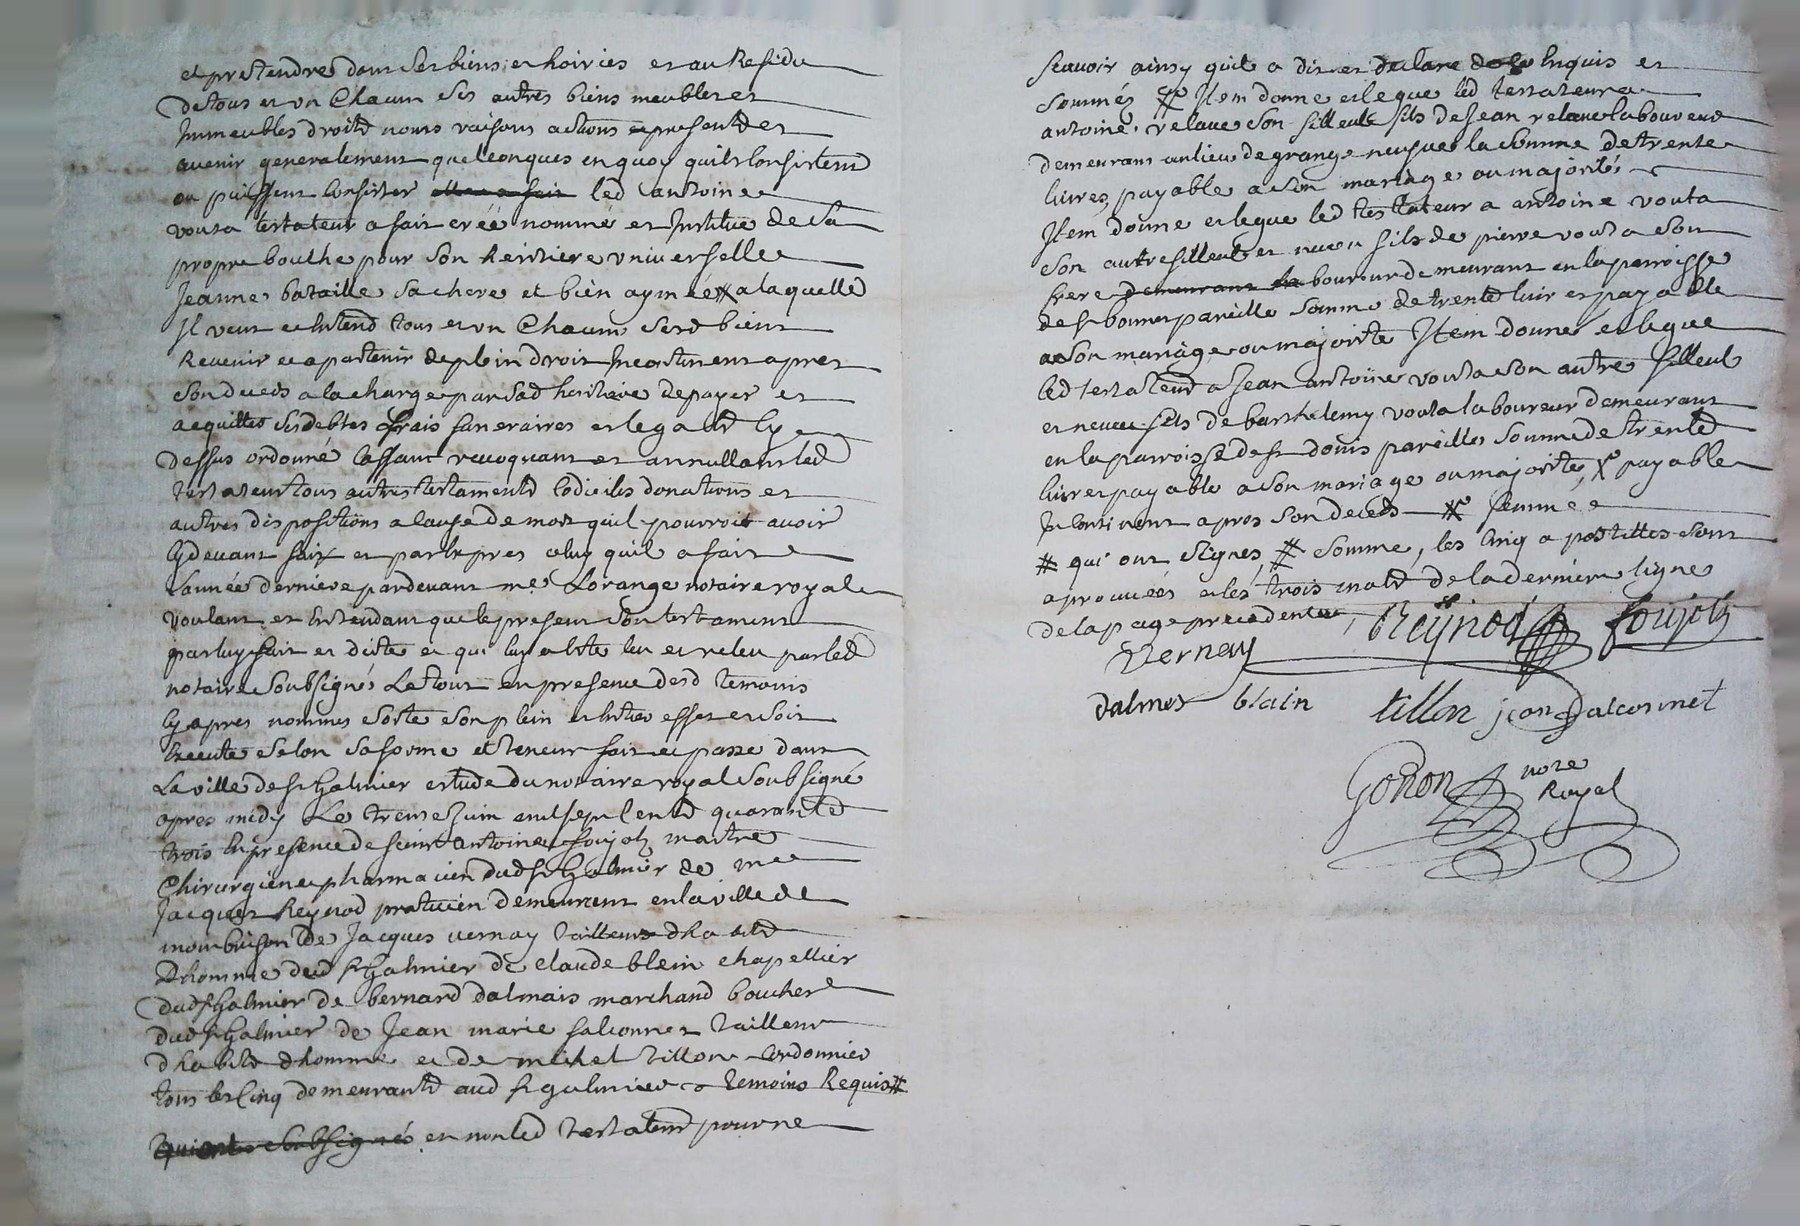 et pretendre dans ses biens et hoiries et au Residu
de tous et un Chacun ses autres biens meubles et
Immeubles droitz noms raisons actions presentz et
avenir generalement quelconques en quoy quils Consistent
ou puissent Consister led antoine
vouta testateur a fait créé nommé et Institué de sa
propre bouche pour son heritiere universelle
Jeanne bataille sa chere et bien aymée # a laquelle
Il veut et Entend tous et un Chacun sesd biens
Revenir et apartenir de plein droit Incontinent apres
son deceds a la charge par sad heritiere de payer et
acquitter ses debtes frais funeraires et legatz Cy
dessus ordonné Cassant revoquant et annullant led
testateur tous autres testamentz Codiciles donations et
autres dispositions a cause de mort quil pourroit avoir
Cy devant fait et par Exprés celuy quil a fait
L'année derniere pardevant me. Lorange notaire royal
voulant et Entendant que le present son testament
par luy fait et dicté et qui luy a été lu et relu par led
notaire soubsigné Le tout en presence desd temoins
Cy apres nommés sorte son plein et Entier effet et soit
Executé selon sa forme et teneur fait et passé dans
La ville de st Galmier estude du notaire royal soubsigné
apres midy Le treize Juin mil sept centz quarante
trois En presence de sieur antoine foujolz maitre
Chirurgien et pharmacien dud st Galmier de me
Jacques Reynod praticien demeurant en la ville de
montbrison de Jacques vernay tailleur d'habitz
D'homme dud st Galmier de claude blein chapellier
dud st Galmier de bernard dalmais marchand boucher
dud st Galmier de Jean marie falconnet tailleur
d'habitz d'homme et de michel tillon Cordonnier
tous les Cinq demeurantz aud st galmier temoins Requis #
qui ont soubsignés et non led testateur pour ne
scavoir ainsy quil a dit et declaré de ce Enquis et
sommés # Item donne et legue led testateur a
antoine relave son filleul fils de Jean relave laboureur
demeurant au lieu de grange neufve la somme de trente
livres payable a son mariage ou majorité
Item donne et legue led testateur a antoine vouta
son autre filleul et neveu fils de pierre vouta son
frere demeurant laboureur demeurant en la parroisse
de st bonnet pareille somme de trente livres payable
a son mariage ou majorité Item donne et legue
led testateur a Jean antoine vouta son autre filleul
et neveu fils de barthelemy vouta laboureur demeurant
en la parroisse de st denis pareille somme de trente
livres payable a son mariage ou majorité, # payable
Incontinent apres son deceds # femme
# qui ont signés # somme, les Cinq apostilles sont
aprouvées et les trois motz de la derniere ligne
de la page precedente, Reynod foujolz
Vernay
dalmes blain tillon jean falconnet
Gonon nore
Royal